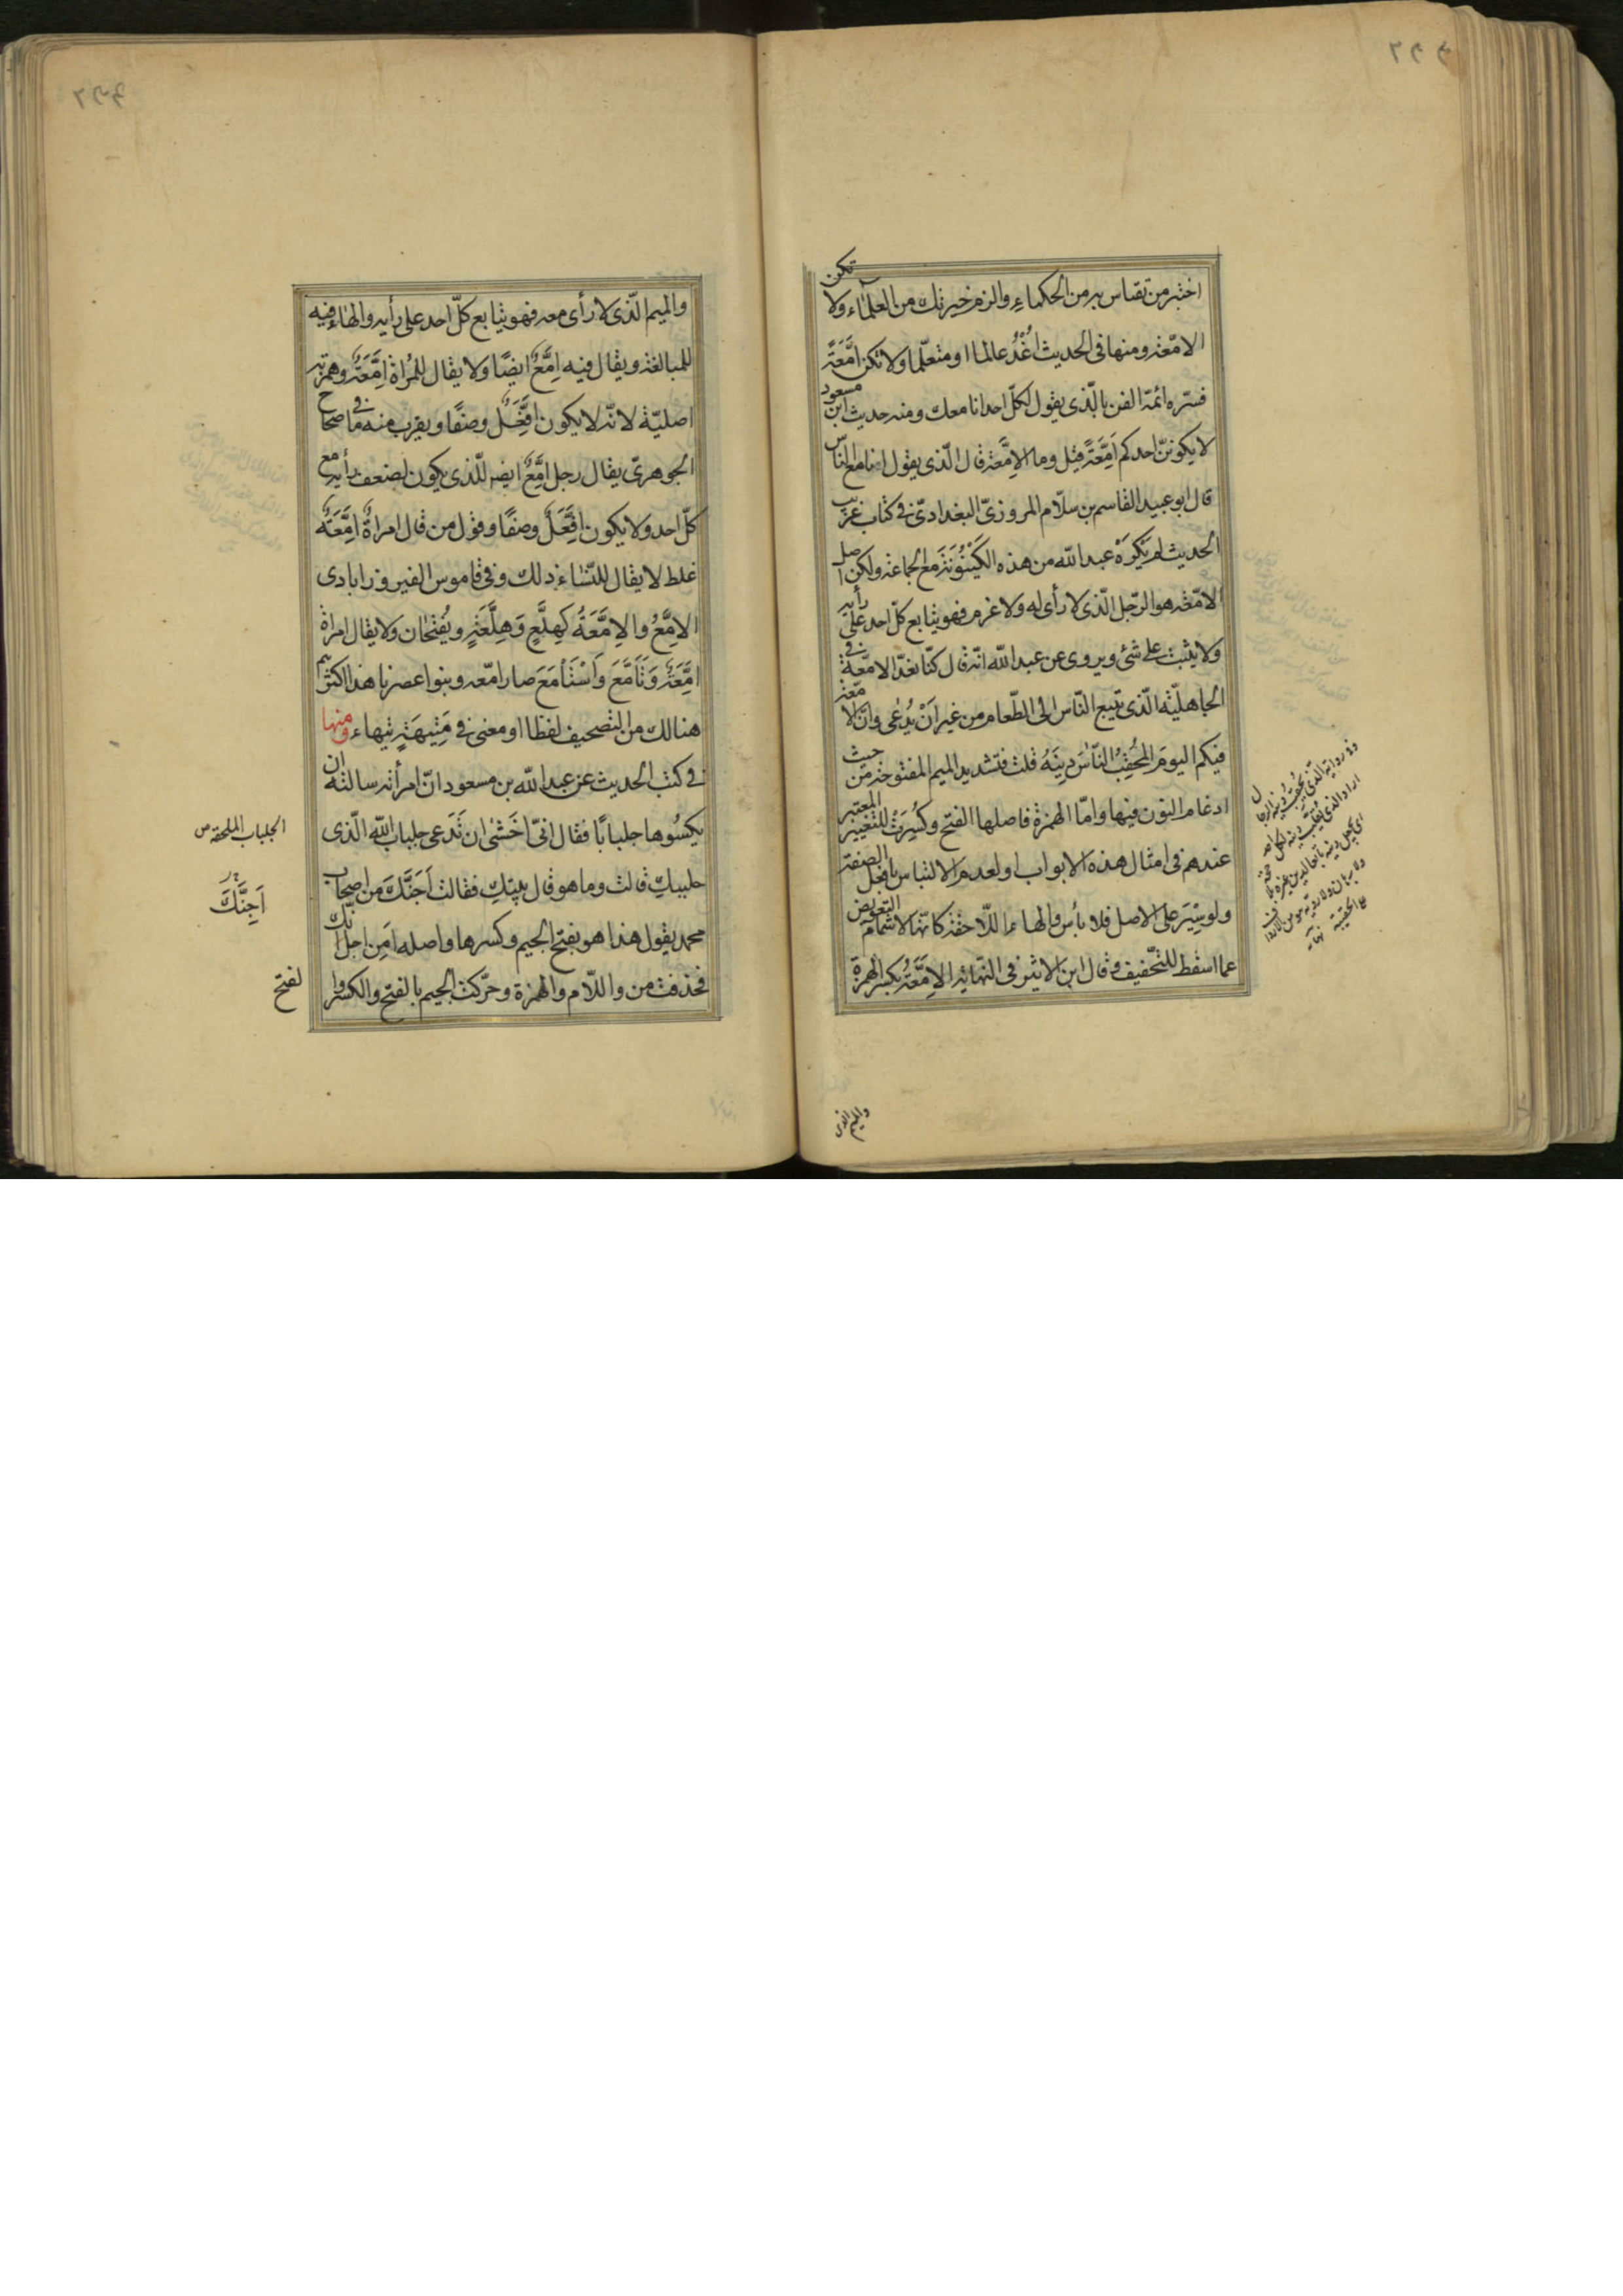 اختبر من تقاس به من الحكماء والزم خيرتك من العلماء ولا تكن
الامّعة ومنها فى الحديث اُغْدُ عالما او متعلّما ولا تكن اِمَّعَةً
فسّره ائمّة الفن بالّذى يقول لكلّ احد انا معك ومنه حديث ابن مسعود
لا يكوننّ احدكم اِمَّعَةً قيل وما الاِمَّعَة قال الّذى يقول انا مع الناس
قال ابو عبيد القاسم بن سلّام المروزىّ البغدادىّ فى كتاب غريب
الحديث لم يَكْرَهْ عبد الله من هذه الكَيْنُونَة مع الجماعة ولكن اصل
الامّعة هو الرّجل الّذى لا رأى له ولا عزم فهو يتابع كلّ احد على رأيه
ولا يثبت على شئ ويروى عن عبد الله انّه قال كنّا نعدّ الامّعة فى
الجاهليّة الّذى يتبع النّاس الى الطّعام من غير اَنْ يُدْعى وانّ الامّعة
فيكم اليومَ المُحْقِبُ النّاسَ دِينَهُ قلت فتشديد الميم المفتوحة من حيث
ادغام النون فيها وامّا الهمزة فاصلها الفتح وكُسِرَتْ للتغيير المعتبر
عندهم فى امثال هذه الابواب او لعدم الالتباس بافعل الصفة
ولو سِيَر على الاصل فلا بأس والهاء اللّاحقة كانّها لاشمام التعويض
عما اسقط للتّخفيف وقال ابن الاثير فى النّهاية الاِمَّعَةُ بكسر الهمزة
والميم الذى
والميم الّذى لا رأى معه فهو يتابع كلّ احد على رأيه والهاء فيه
للمبالغة ويقال فيه اِمَّعٌ ايضًا ولا يقال للمُراة اِمَّعَةٌ وهمزته
اصليّة لانّه لا يكون اِفَّعَلٌ وصفًا ويقرب منه ما فى صحاح
الجوهرىّ يقال رجل اِمَّعٌ ايضا للّذى يكون لضعف رأيه مع
كلّ احد ولا يكون اِفَّعَلٌ وصفًا وقول من قال امراةٌ اِمَّعَةٌ
غلط لا يقال للنّساء ذلك وفى قاموس الفيروزابادى
الاِمَّعُ والاِمَّعَةُ كَهِلَّعٍ وَهِلَّعَةٍ ويُفتحان ولا يقال امراة
اِمَّعَةٌ وَتَاَمَّعَ وَاَسْتَاْمَعَ صار امّعه وبنوا عصرنا هذا اكثرهم
هنالك من التصحيف لفظا او معنى فى مَتِيهَةٍ تيهاء ومنها
فى كتب الحديث عن عبد الله بن مسعود انّ امرأته سالته ان
يكسُوها جلبابًا فقال انّى اخشى ان تَدَعى جلباب الله الّذى
جلببكِ قالت وما هو قال بيتكِ فقالت اَجَنَّكَ من اصحاب
محمد يقول هذا هو بفتح الجيم وكسرها واصله اَمِن اجل انّك
فحذفت من واللّام والهمزة وحرّكت الجيم بالفتح والكسر وا
الجلباب الملحفة ص
اَجِنَّكَ
لفتح